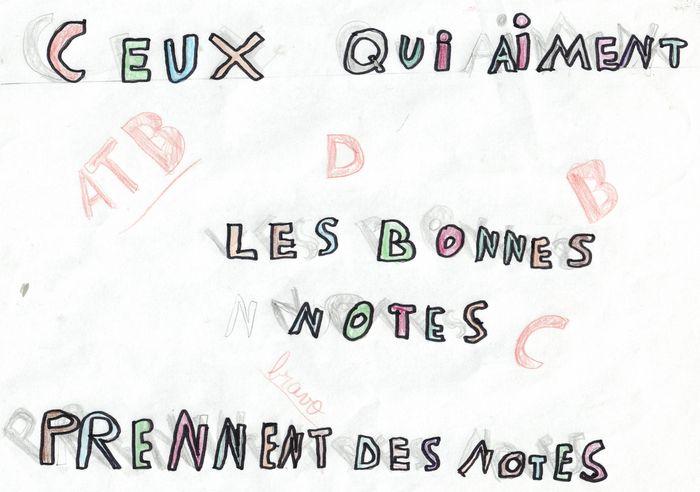 CEUX QUi AiMENT
ATB
D
B
LES BONNES
NOTES
C
bravo
PRENNENT DES NOTES